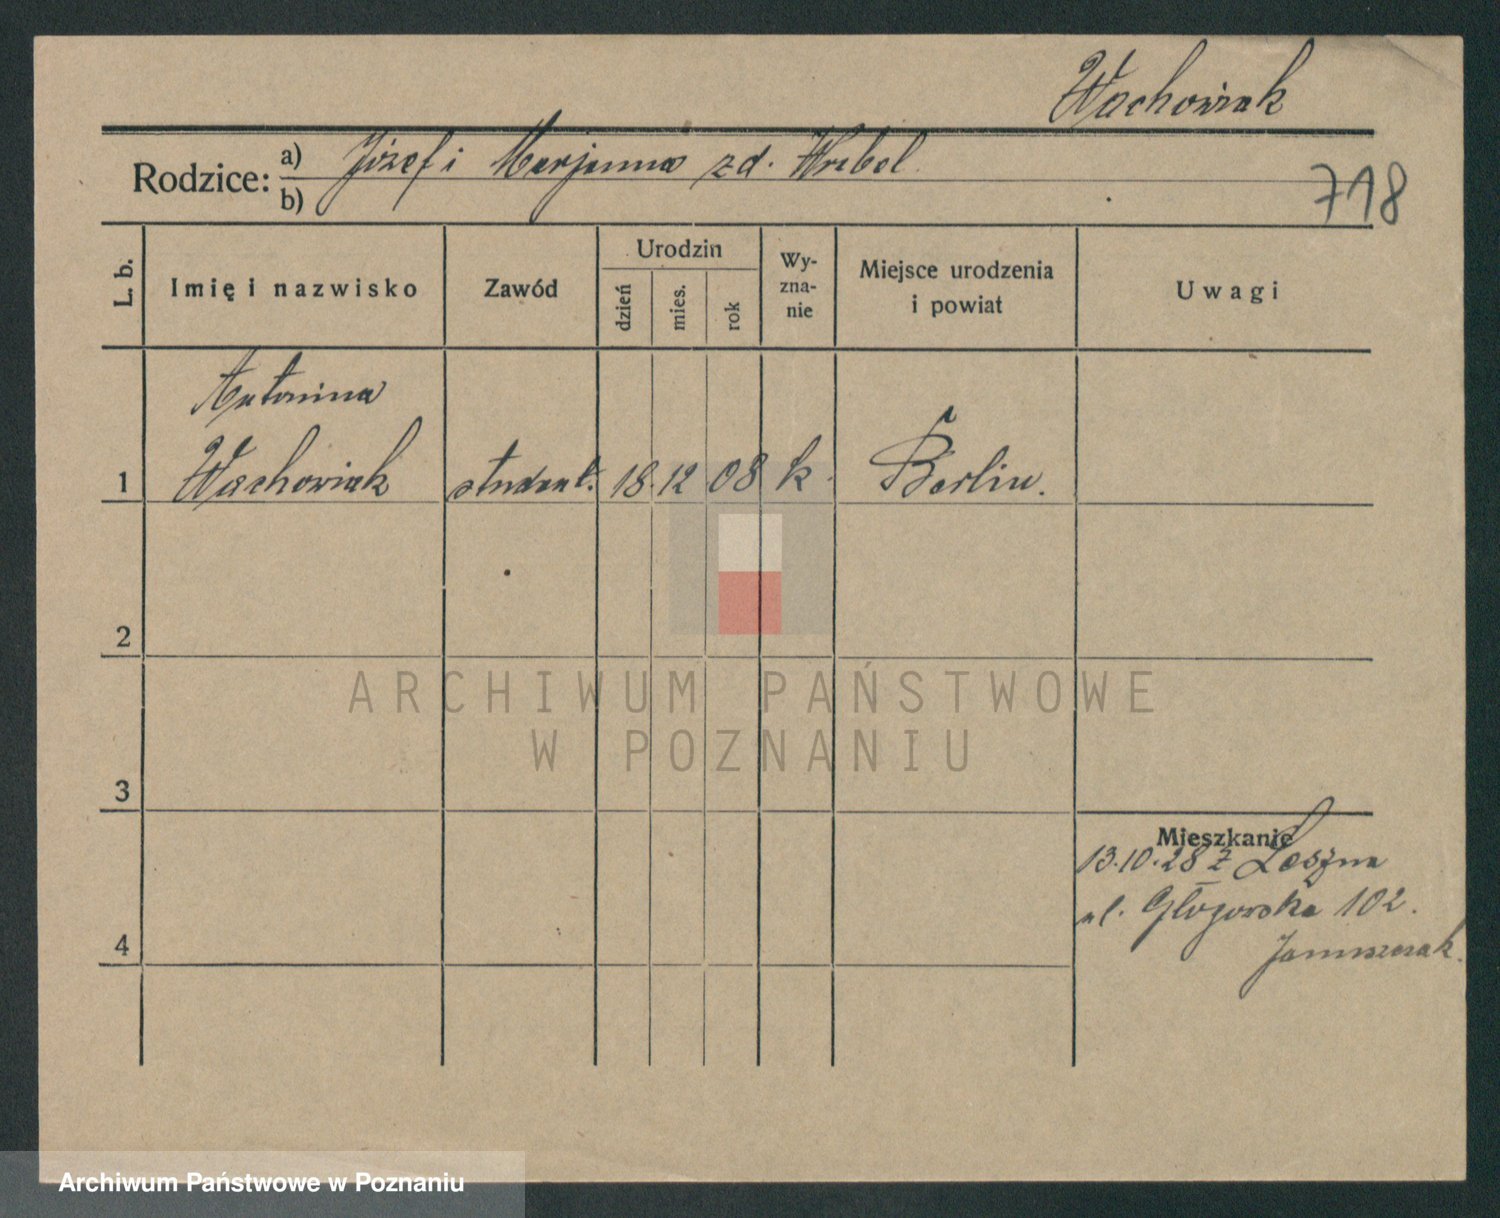 Wachowiak
Rodzice: a) Józef i Marjanna zd. Wrobel
b)
718
L. b.
Imię i nazwisko
Zawód
Urodzin
dzień
mies.
rok
Wy-
zna-
nie
Miejsce urodzenia
i powiat
Uwagi
Antonina
1 Wachowiak student. 18. 12 08 k. Berlin.
2
3
4
Mieszkanie
13.10.28 z Leszna
ul. Głogowska 102.
ARCHIWUM PAŃSTWOWE
W POZNANIU
Archiwum Państwowe w Poznaniu